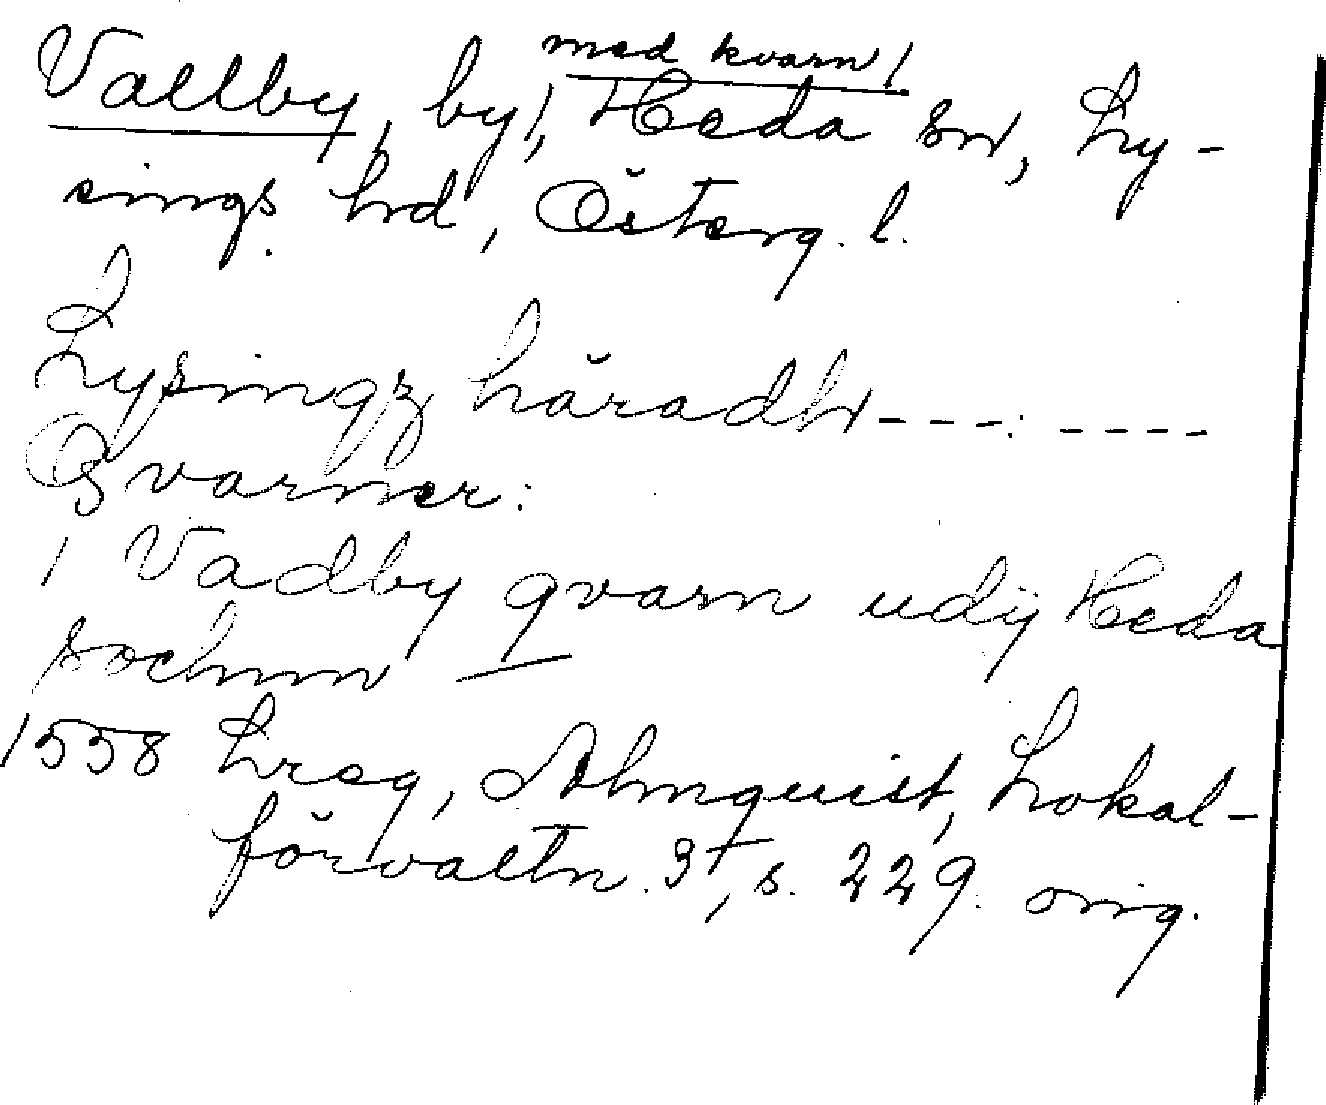 med kvarn!
Vallby, by!, Heda sn, Ly-
sings hd, Österg. l.
Lysingz häradh ---: ----
Qvarner:
1 Vadby qvarn udij Heda
sochnn —
1558 Lreg, Almquist, Lokal-
förvaltn. 3, s. 229. orig.